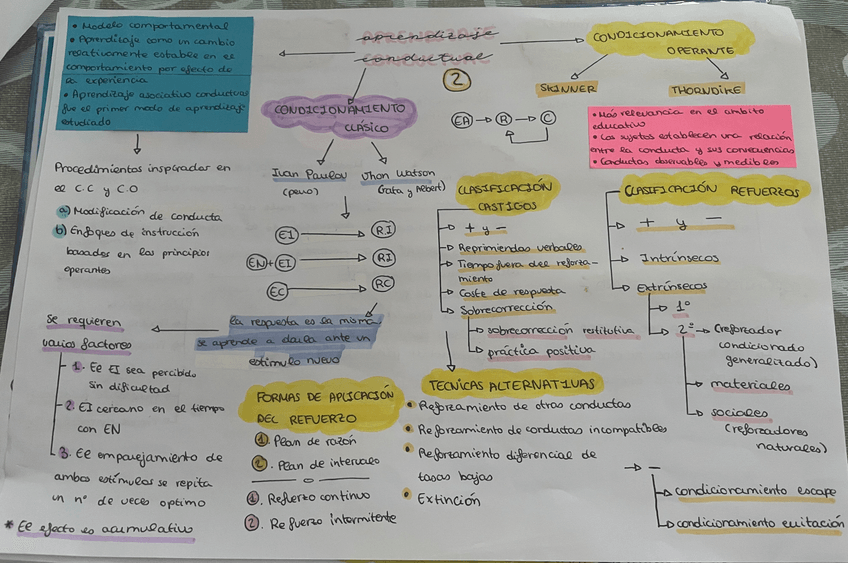 aprendizaje
conductual
2
• Modelo comportamental
• Aprendizaje como un cambio
relativamente estable en el
comportamiento por efecto de
la experiencia
• Aprendizaje asociativo conductual
fue el primer modo de aprendizaje
estudiado
Procedimientos inspirados en
el C.C y C.O
a) Modificación de conducta
b) Enfoques de instrucción
basados en los principios
operantes
CONDICIONAMIENTO
CLÁSICO
Ivan Paulov
(perro)
Jhon Watson
(rata y Albert)
EI → RI
EN + EI → RI
EC → RC
la respuesta es la misma,
se aprende a darla ante un
estímulo nuevo
Se requieren
varios factores
1. El EI sea percibido
sin dificultad
2. EI cercano en el tiempo
con EN
3. El emparejamiento de
ambos estímulos se repita
un nº de veces optimo
* El efecto es acumulativo
CONDICIONAMIENTO
OPERANTE
SKINNER
THORNDIKE
EA → R → C
• Más relevancia en el ambito
educativo
• Los sujetos establecen una relación
entre la conducta y sus consecuencias
• Conductas observables y medibles
CLASIFICACIÓN
CASTIGOS
+ y -
Reprimiendas verbales
Tiempo fuera del reforza-
miento
Coste de respuesta
Sobrecorrección
sobrecorrección restitutiva
práctica positiva
CLASIFICACIÓN REFUERZOS
+ y -
Intrínsecos
Extrínsecos
1º
2º → (reforzador
condicionado
generalizado)
materiales
sociales
(reforzadores
naturales)
→ -
condicionamiento escape
condicionamiento evitación
FORMAS DE APLICACIÓN
DEL REFUERZO
1. Plan de razón
2. Plan de intervalo
1. Refuerzo continuo
2. Refuerzo intermitente
TECNICAS ALTERNATIVAS
• Reforzamiento de otras conductas
• Reforzamiento de conductas incompatibles
• Reforzamiento diferencial de
tasas bajas
• Extinción